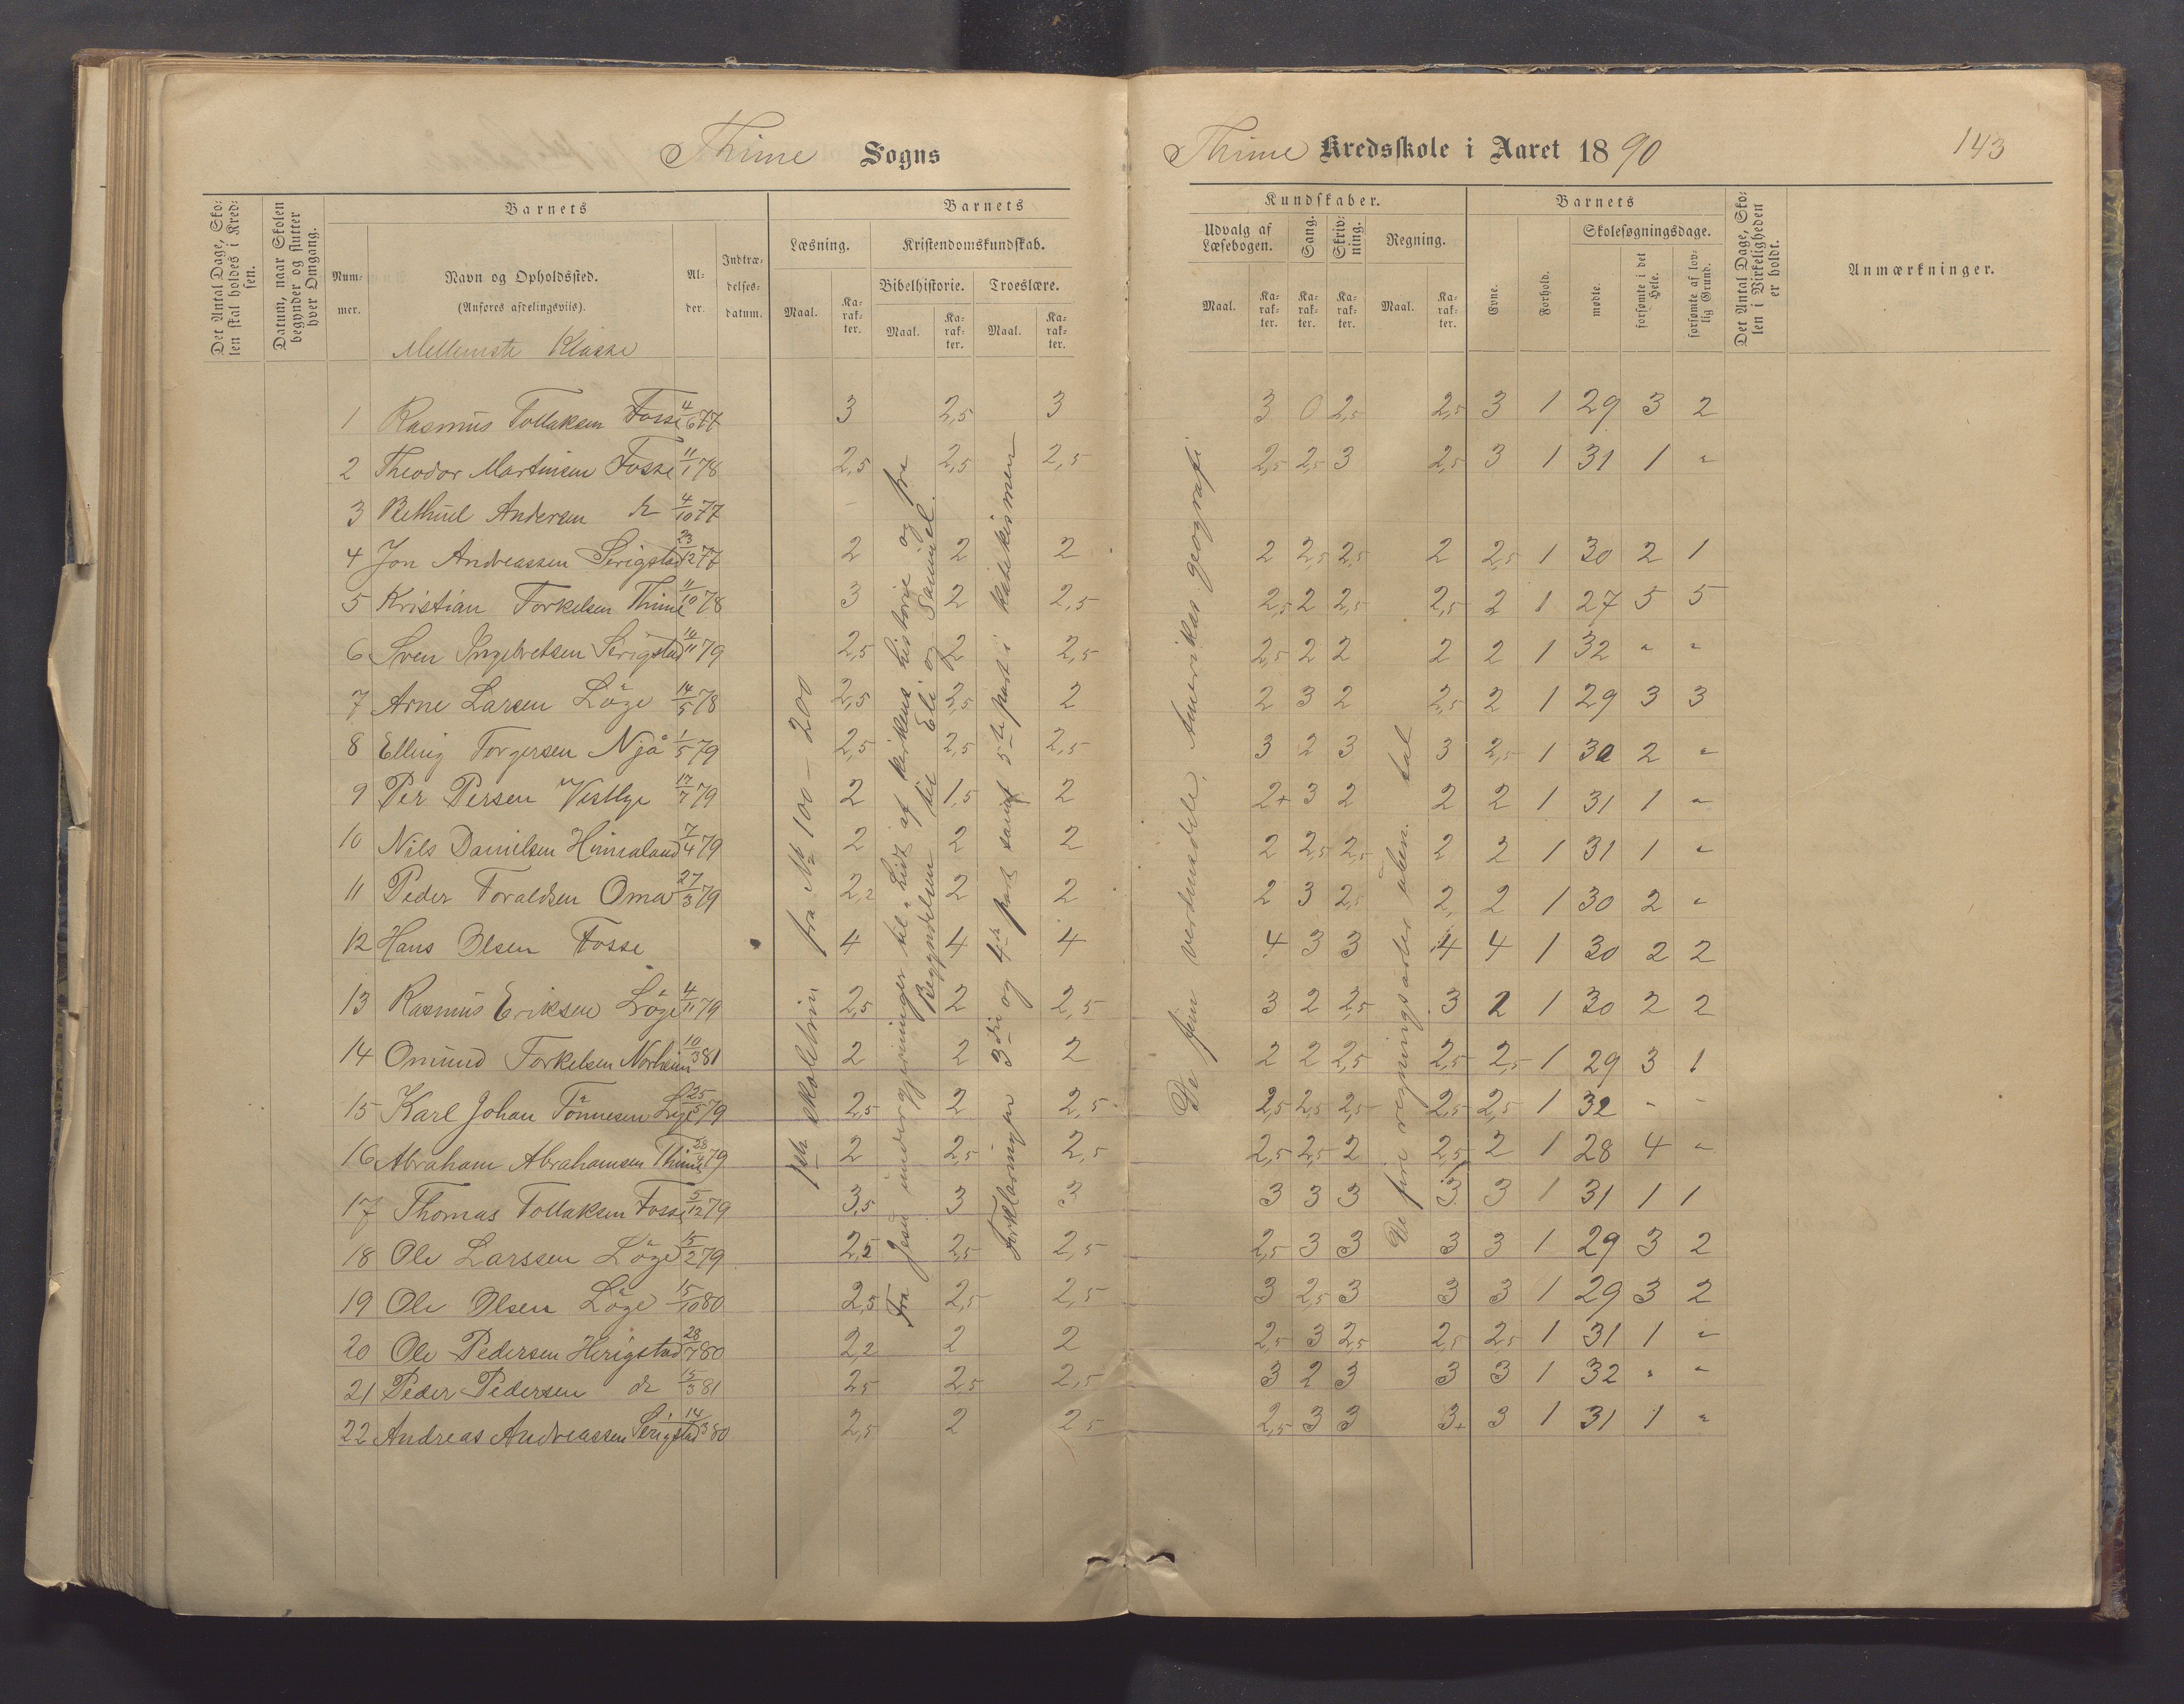 Thime Sogns
Thime Kredsskole i Aaret 1890
143
Det Antal Dage, Skolen skal holdes i Kredsen.
Datum, naar Skolen begynder og slutter hver Omgang.
Barnets
Nummer.
Navn og Opholdssted.
(Anføres afdelingsviis).
Alder.
Indtrædelsesdatum.
Barnets
Læsning.
Maal.
Karakter.
Kristendomskundskab.
Bibelhistorie.
Maal.
Karakter.
Troeslære.
Maal.
Karakter.
Kundskaber.
Udvalg af Læsebogen.
Maal.
Karakter.
Sang.
Karakter.
Skrivning.
Karakter.
Regning.
Maal.
Karakter.
Barnets
Evne.
Forhold.
Skolesøgningsdage.
mødte.
forsømte i det Hele.
forsømte af lovlig Grund.
Det Antal Dage, Skolen i Virkeligheden er holdt.
Anmærkninger.
Mellemste Klasse
1 Rasmus Tollaksen Fosse 4/6 77 3 2,5 3 3 0 2,5 2,5 3 1 29 3 2
2 Theodor Martinsen Fosse 11/1 78 2,5 2,5 2,5 2,5 2,5 3 2,5 3 1 31 1 "
3 Bethuel Andersen do 4/10 77
4 Jon Andreassen Serigstad 23/12 77 2 2 2 2 2,5 2,5 2 2,5 1 30 2 1
5 Kristian Torkelsen Thime 11/10 78 3 2 2,5 2,5 2 2,5 2,5 2 1 27 5 5
6 Sven Ingebretsen Serigstad 79 2,5 2 2,5 2,5 2 2 2 2 1 32 " "
7 Arne Larsen Löge 14/5 78 2,5 2,5 2 2 3 2 2,5 2 1 29 3 3
8 Elling Torgersen Njå 1/5 79 2,5 2,5 2,5 3 2 3 3 2,5 1 30 2 "
9 Per Persen Vestlye 17/7 79 2 1,5 2 2+ 3 2 2 2 1 31 1 "
10 Nils Danielsen Hinnaland 7/4 79 2 2 2 2 2,5 2,5 2 2 1 31 1 "
11 Peder Toraldsen Oma 27/3 79 2,2 2 2 2 3 2,5 2, 2 1 30 2 "
12 Hans Olsen Fosse 4 4 4 4 3 3 4 4 1 30 2 2
13 Rasmus Eriksen Löge 4/11 79 2,5 2 2,5 3 2 2,5 3 2 1 30 2 2
14 Omund Torkelsen Norheim 10/3 81 2 2 2 2 2 2,5 2,5 2,5 1 29 3 1
15 Karl Johan Tönnesen Lye 25/5 79 2,5 2 2,5 2,5 2,5 2,5 2,5 2,5 1 32 - -
16 Abraham Abrahamsen Thime 79 2 2,5 2,5 2,5 2,5 2 2,5 2 1 28 4 "
17 Thomas Tollaksen Fosse 5/12 79 3,5 3 3 3 3 3 3 3 1 31 1 1
18 Ole Larssen Löge 15/2 79 2,5 2,5 2,5 2,5 3 3 3 3 1 29 3 2
19 Ole Olsen Löge 15/10 80 2,5 2,5 2,5 3 2,5 3 3 3 1 29 3 2
20 Ole Pedersen Herigstad 28/7 80 2,2 2 2 2,5 3 2,5 2,5 2,5 1 31 1 "
21 Peder Pedersen do 15/3 81 2,5 2,5 2,5 3 2 3 3 3 1 32 " "
22 Andreas Andreassen Serigstad 14/3 80 2,5 2 2,5 2,5 3 3 3+ 3 1 31 1 "
1ste skoletrin fra No 100 – 200
Fra Jesu undergjerninger til "Lidt af kirkens historie og fra
Begyndelsen til Eli og Samuel.
Forklaringen 3die og 4de part samt 5te part i katekismen
De fem verdensdele, Amerikas geografi
De fire regningsarter uben. tal